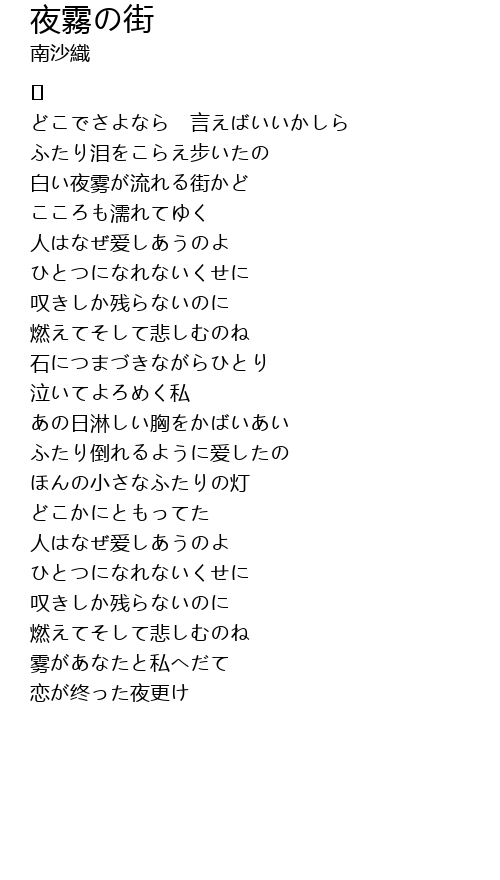 夜霧の街
南沙織
どこでさよなら　言えばいいかしら
ふたり泪をこらえ歩いたの
白い夜雾が流れる街かど
こころも濡れてゆく
人はなぜ爱しあうのよ
ひとつになれないくせに
叹きしか残らないのに
燃えてそして悲しむのね
石につまづきながらひとり
泣いてよろめく私
あの日淋しい胸をかばいあい
ふたり倒れるように爱したの
ほんの小さなふたりの灯
どこかにともってた
人はなぜ爱しあうのよ
ひとつになれないくせに
叹きしか残らないのに
燃えてそして悲しむのね
雾があなたと私へだて
恋が终った夜更け